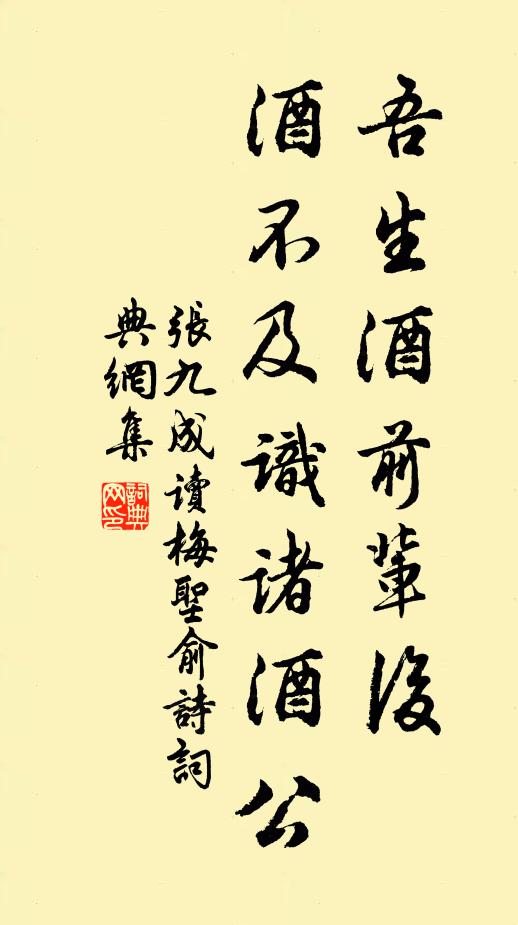 吾生酒前輩後
酒不及識諸酒公
張九成讀梅聖俞詩詞
典網集
詞典
网印